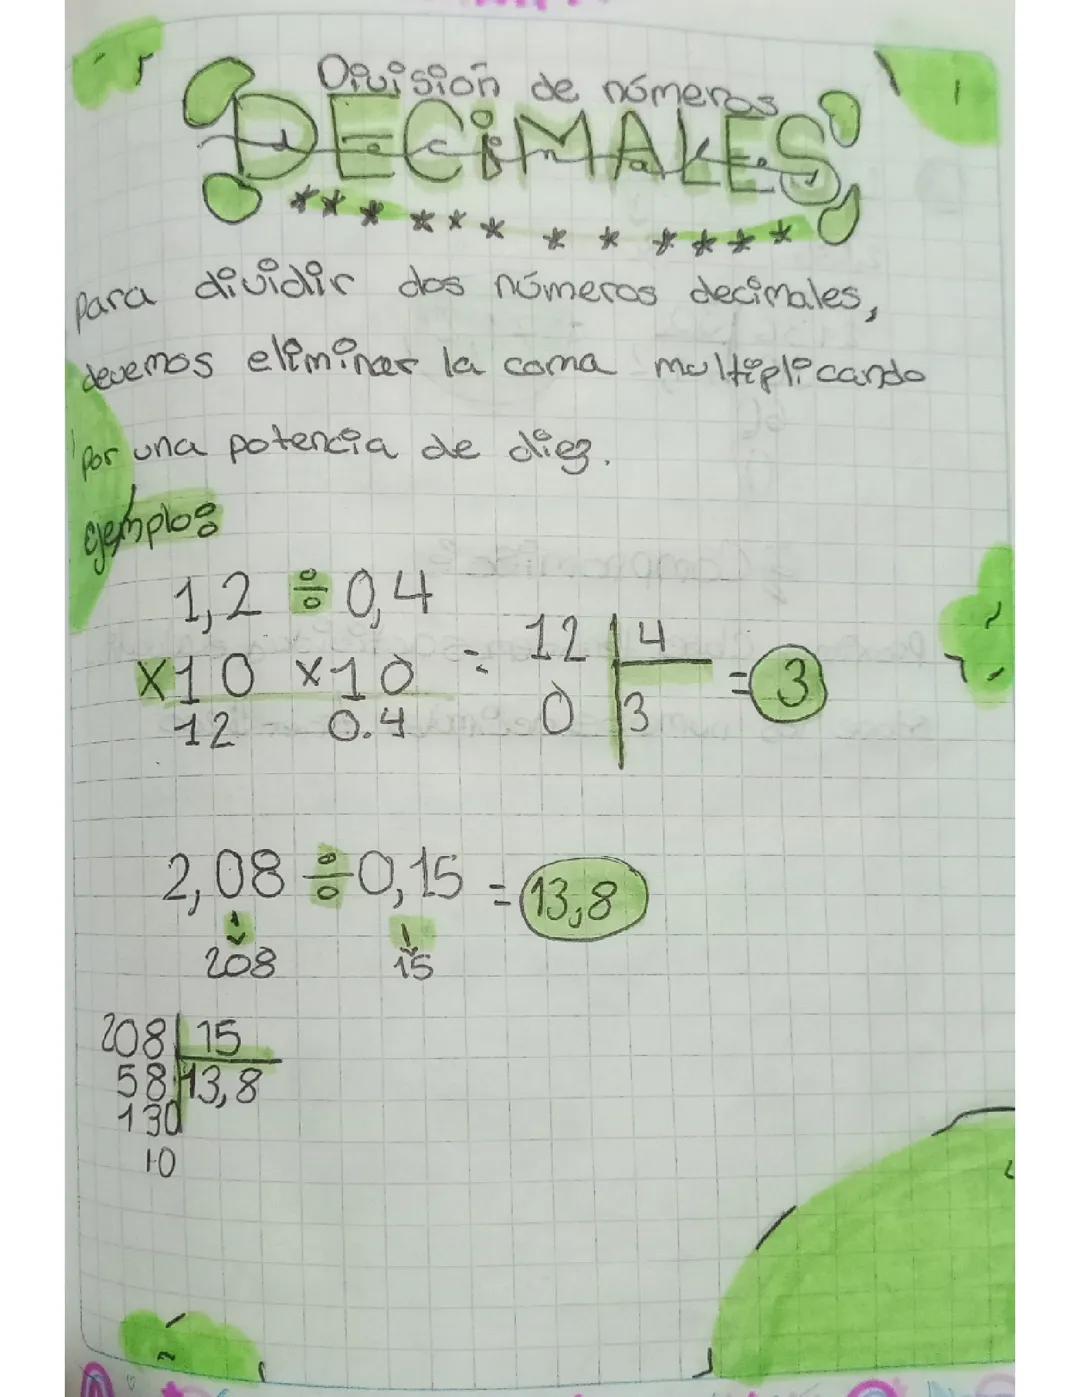 División de números
DECIMALES
Decimales
para dividir dos números decimales,
devemos eliminar la coma multiplicando
por una potencia de diez.
ejemplo:
1,2 ÷ 0,4
x10 x10 = 12 | 4 = 3
12 0.4 0 | 3
2,08 ÷ 0,15 = 13,8
208 15
208 | 15
58 13,8
130
10